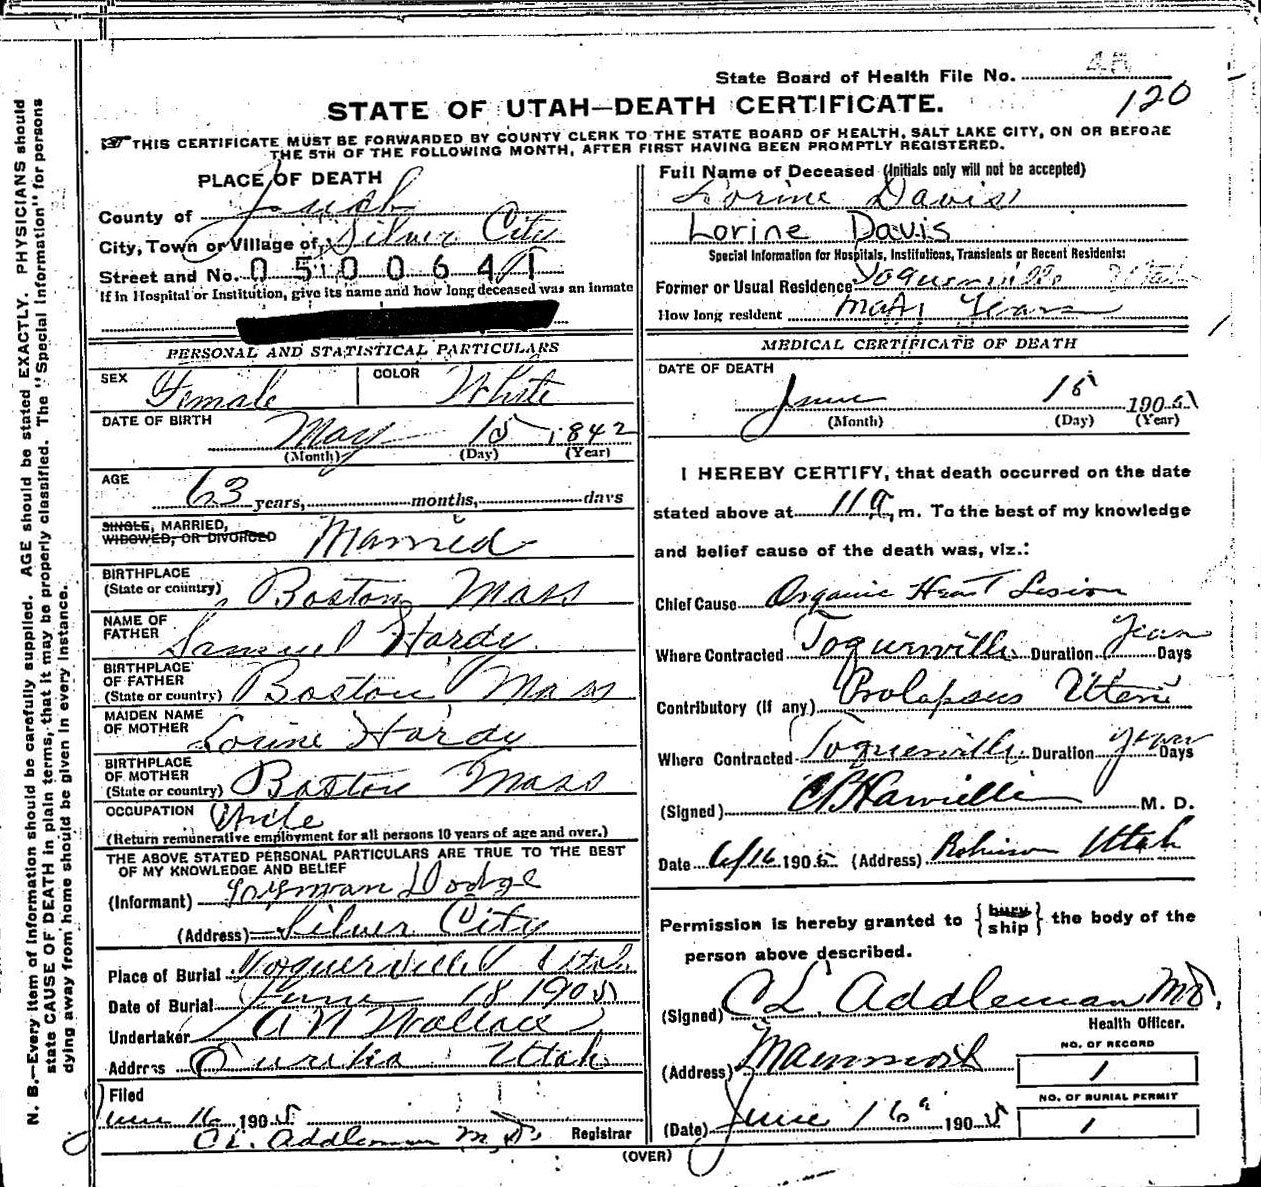 State Board of Health File No. 45
120
STATE OF UTAH—DEATH CERTIFICATE.
THIS CERTIFICATE MUST BE FORWARDED BY COUNTY CLERK TO THE STATE BOARD OF HEALTH, SALT LAKE CITY, ON OR BEFORE
THE 5TH OF THE FOLLOWING MONTH, AFTER FIRST HAVING BEEN PROMPTLY REGISTERED.
N. B.—Every item of information should be carefully supplied. AGE should be stated EXACTLY. PHYSICIANS should
state CAUSE OF DEATH in plain terms, that it may be properly classified. The "Special Information" for persons
dying away from home should be given in every instance.
PLACE OF DEATH
County of Juab
City, Town or Village of Silver City
Street and No. 0500641
If in Hospital or Institution, give its name and how long deceased was an inmate
PERSONAL AND STATISTICAL PARTICULARS
SEX Female COLOR White
DATE OF BIRTH May 15 1842
(Month) (Day) (Year)
AGE 63 years, months, days
SINGLE, MARRIED,
WIDOWED, OR DIVORCED Married
BIRTHPLACE
(State or country) Boston Mass
NAME OF
FATHER Samuel Hardy
BIRTHPLACE
OF FATHER
(State or country) Boston Mass
MAIDEN NAME
OF MOTHER Lorine Hardy
BIRTHPLACE
OF MOTHER
(State or country) Boston Mass
OCCUPATION
(Return remunerative employment for all persons 10 years of age and over.)
THE ABOVE STATED PERSONAL PARTICULARS ARE TRUE TO THE BEST
OF MY KNOWLEDGE AND BELIEF
(Informant) Dodge
(Address) Silver City
Place of Burial Toquerville Utah
Date of Burial June 18 1905
Undertaker A N Wallace
Address Eureka Utah
Filed
June 16 1905
C L. Addleman M. D. Registrar
Full Name of Deceased (Initials only will not be accepted)
Lorine Davis
Lorine Davis
Special Information for Hospitals, Institutions, Transients or Recent Residents:
Former or Usual Residence Toquerville Utah
How long resident Many Years
MEDICAL CERTIFICATE OF DEATH
DATE OF DEATH
June 15 1905
(Month) (Day) (Year)
I HEREBY CERTIFY, that death occurred on the date
stated above at 11 a. m. To the best of my knowledge
and belief cause of the death was, viz.:
Chief Cause Organic Heart Lesion
Where Contracted Toquerville Duration Years Days
Contributory (if any) Prolapsus Uteri
Where Contracted Toquerville Duration years Days
(Signed) M. D.
Date 6/16 1905 (Address) Robinson Utah
Permission is hereby granted to {bury
ship} the body of the
person above described.
(Signed) C L Addleman MD.
Health Officer.
(Address) Mammoth
NO. OF RECORD
1
NO. OF BURIAL PERMIT
1
(Date) June 16 1905
(OVER)